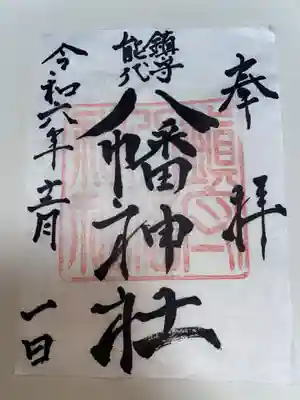 奉拝
能代
鎮守
八幡神社
令和六年十二月
一日